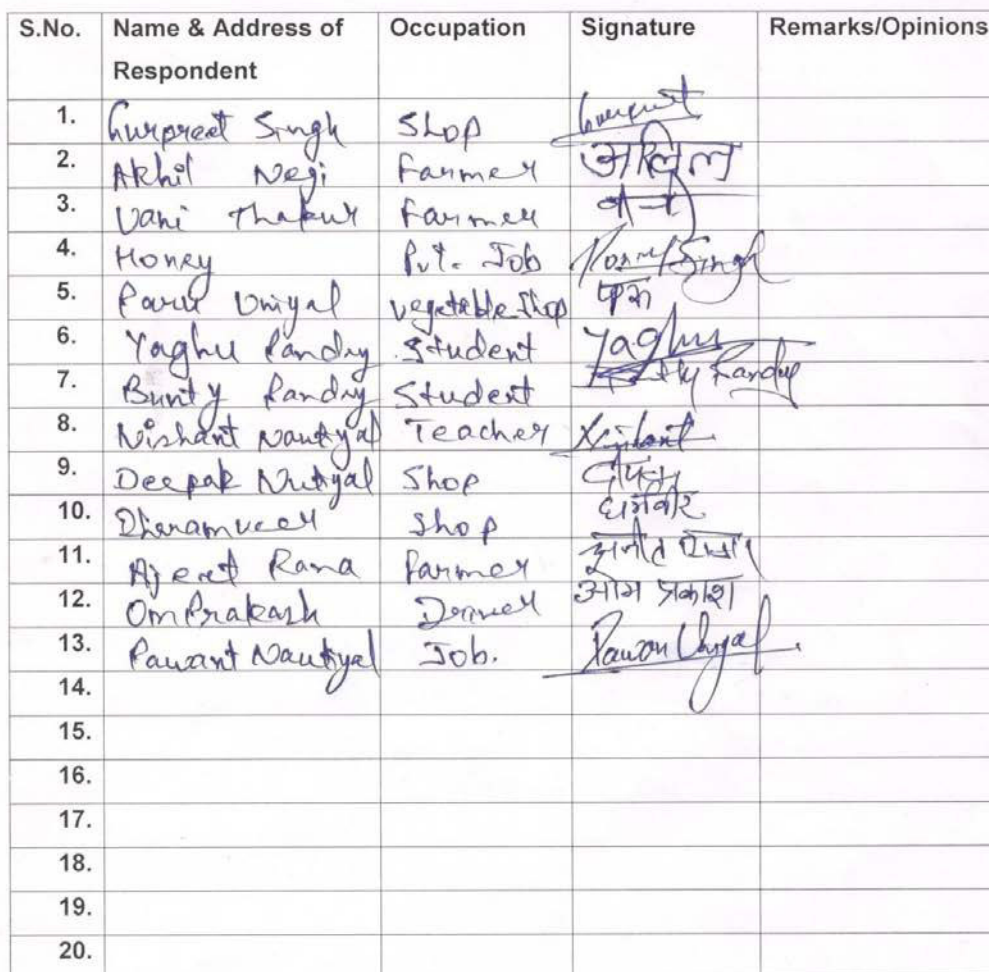 S.No. Name & Address of Respondent Occupation Signature Remarks/Opinions
1. Gurpreet Singh Shop Gurpreet
2. Akhil Negi Farmer अखिल
3. Vani Thakur Farmer वानी
4. Honey Pvt. Job Singh
5. Paru Uniyal vegetable shop
6. Yaghu Pandey Student Yaghu
7. Bunty Pandey Student Bunty Pandey
8. Nishant Nautiyal Teacher Nishant
9. Deepak Nutiyal Shop दीपक
10. Dharamveer Shop धर्मवीर
11. Ajeet Rana Farmer
12. Om Prakash Driver ओम प्रकाश
13. Pawant Nautiyal Job. Pawan Uniyal
14.
15.
16.
17.
18.
19.
20.